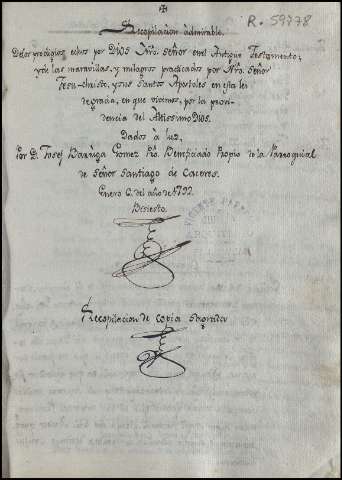 ✠
R. 59778
Recopilacion admirable.
Delos prodigios echos por DIOS Nrõ. Señor en el Antiguo Testamento;
y de las maravillas, y milagros practicados por Nrõ. Señor
Jesu-christo, y sus Santos Apostoles en esta lei
de gracia, en que vivimos, por la provi-
dencia del Altissimo Dios.
Dados a luz,
Por D. Josef Barriga Gomez Beneficiado Propio de la Parroquial
de Señor Santiago de Caceres.
Enero 6. del año de 1792.
Bisiesto.
Recopilacion de copia